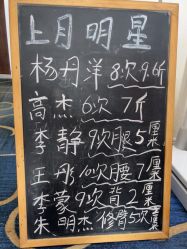 上月明星
杨丹洋8次9.6斤
高杰6次7斤
李静9次腿5厘米
王彤10次腰7厘米
李蒙9次背2厘米
朱明杰修臂5次